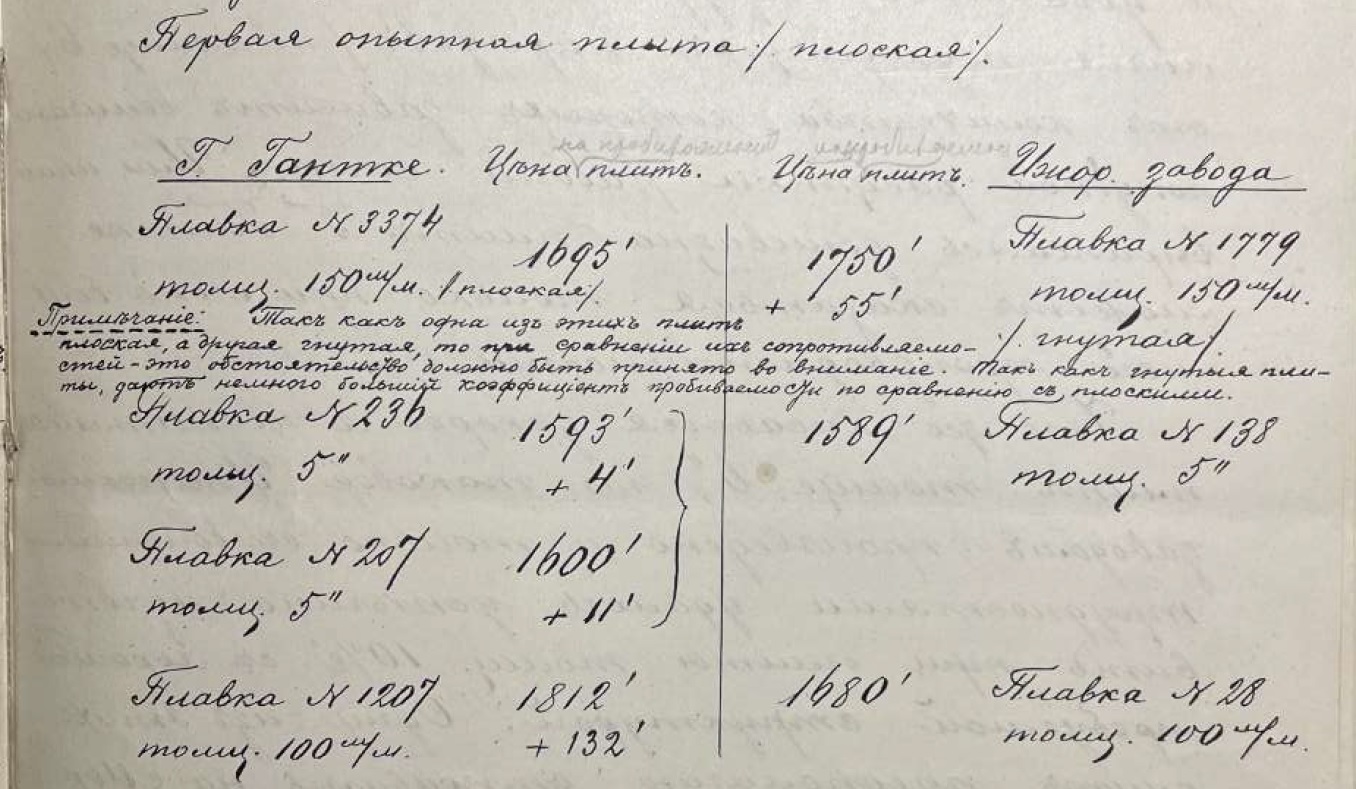 Первая опытная плита /плоская/.
Г. Гантке. Цѣна плитъ. Цѣна плитъ. Ижор. завода
Плавка N 3374 1695' 1750' Плавка N 1779
толщ. 150 м/м. /плоская/. + 55' толщ. 150 м/м.
Примѣчаніе: Такъ какъ одна изъ этихъ плитъ /гнутая/
плоская, а другая гнутая, то при сравненіи ихъ сопротивляемо-
стей - это обстоятельство должно быть принято во вниманіе. Такъ какъ гнутыя пли-
ты, даютъ немного большій коэффиціентъ пробиваемости по сравненію съ плоскими.
Плавка N 236 1593' 1589' Плавка N 138
толщ. 5" + 4' толщ. 5"
Плавка N 207 1600'
толщ. 5" + 11'
Плавка N 1207 1812' 1680' Плавка N 28
толщ. 100 м/м. + 132' толщ. 100 м/м.